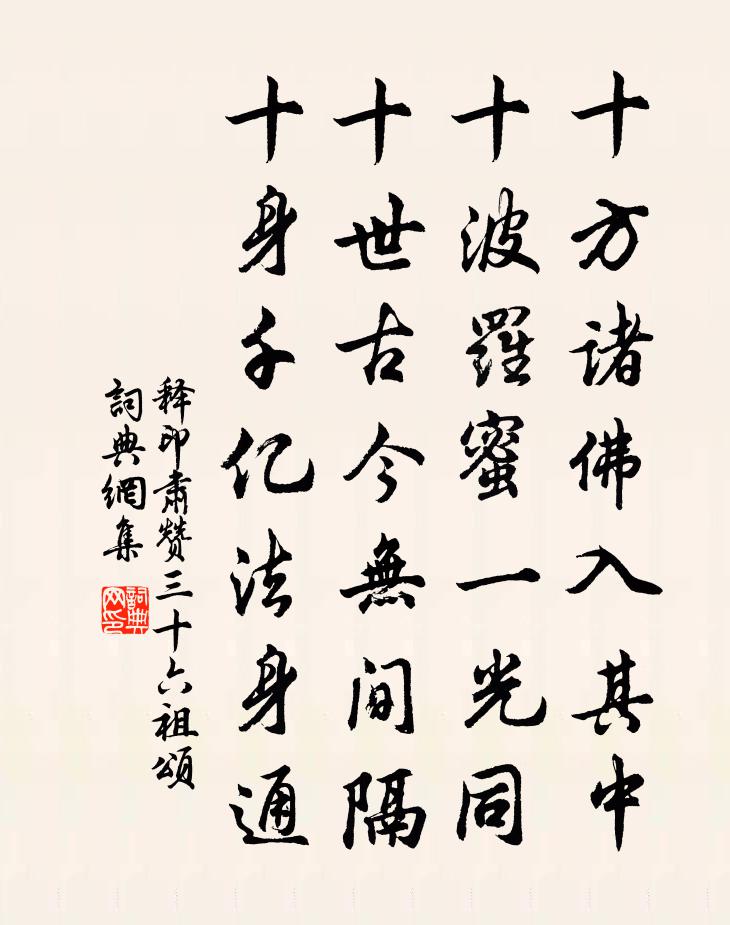 十方諸佛入其中
十波羅蜜一光同
十世古今無間隔
十身千亿法身通
释印肃赞三十六祖頌
詞典網集
詞典网印